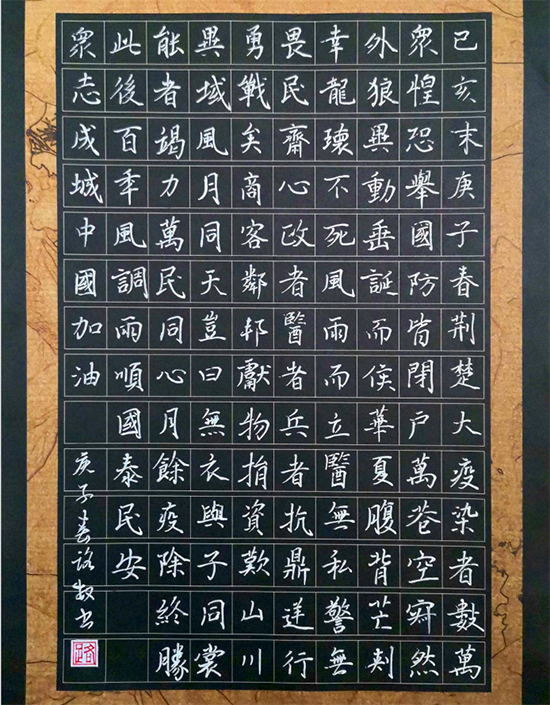 已亥末庚子春荊楚大疫染者數萬
眾惶恐舉國防皆閉戶萬巷空寂然
外狼異動垂誕而俟華夏腹背芒刺
幸龍瓌不死風雨而立醫無私警無
畏民齋心政者醫者兵者抗鼎逆行
勇戰矣商客鄰邦獻物捐資歎山川
異域風月同天豈曰無衣與子同裳
能者竭力萬民同心月餘疫除終勝
此後百年風調雨順國泰民安
眾志成城中國加油
庚子春路书
路